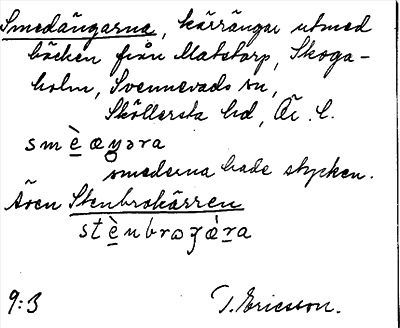 Smedängarna, kärrängar utmed
bäcken från Matstorp, Skoga-
holm, Svennevads sn,
Sköllersta hd, Ör. l.
smèæŋəra
smederna hade stycken.
Även Stenbrokärren
stènbroʒæ̀ra
9:3 T. Ericsson.